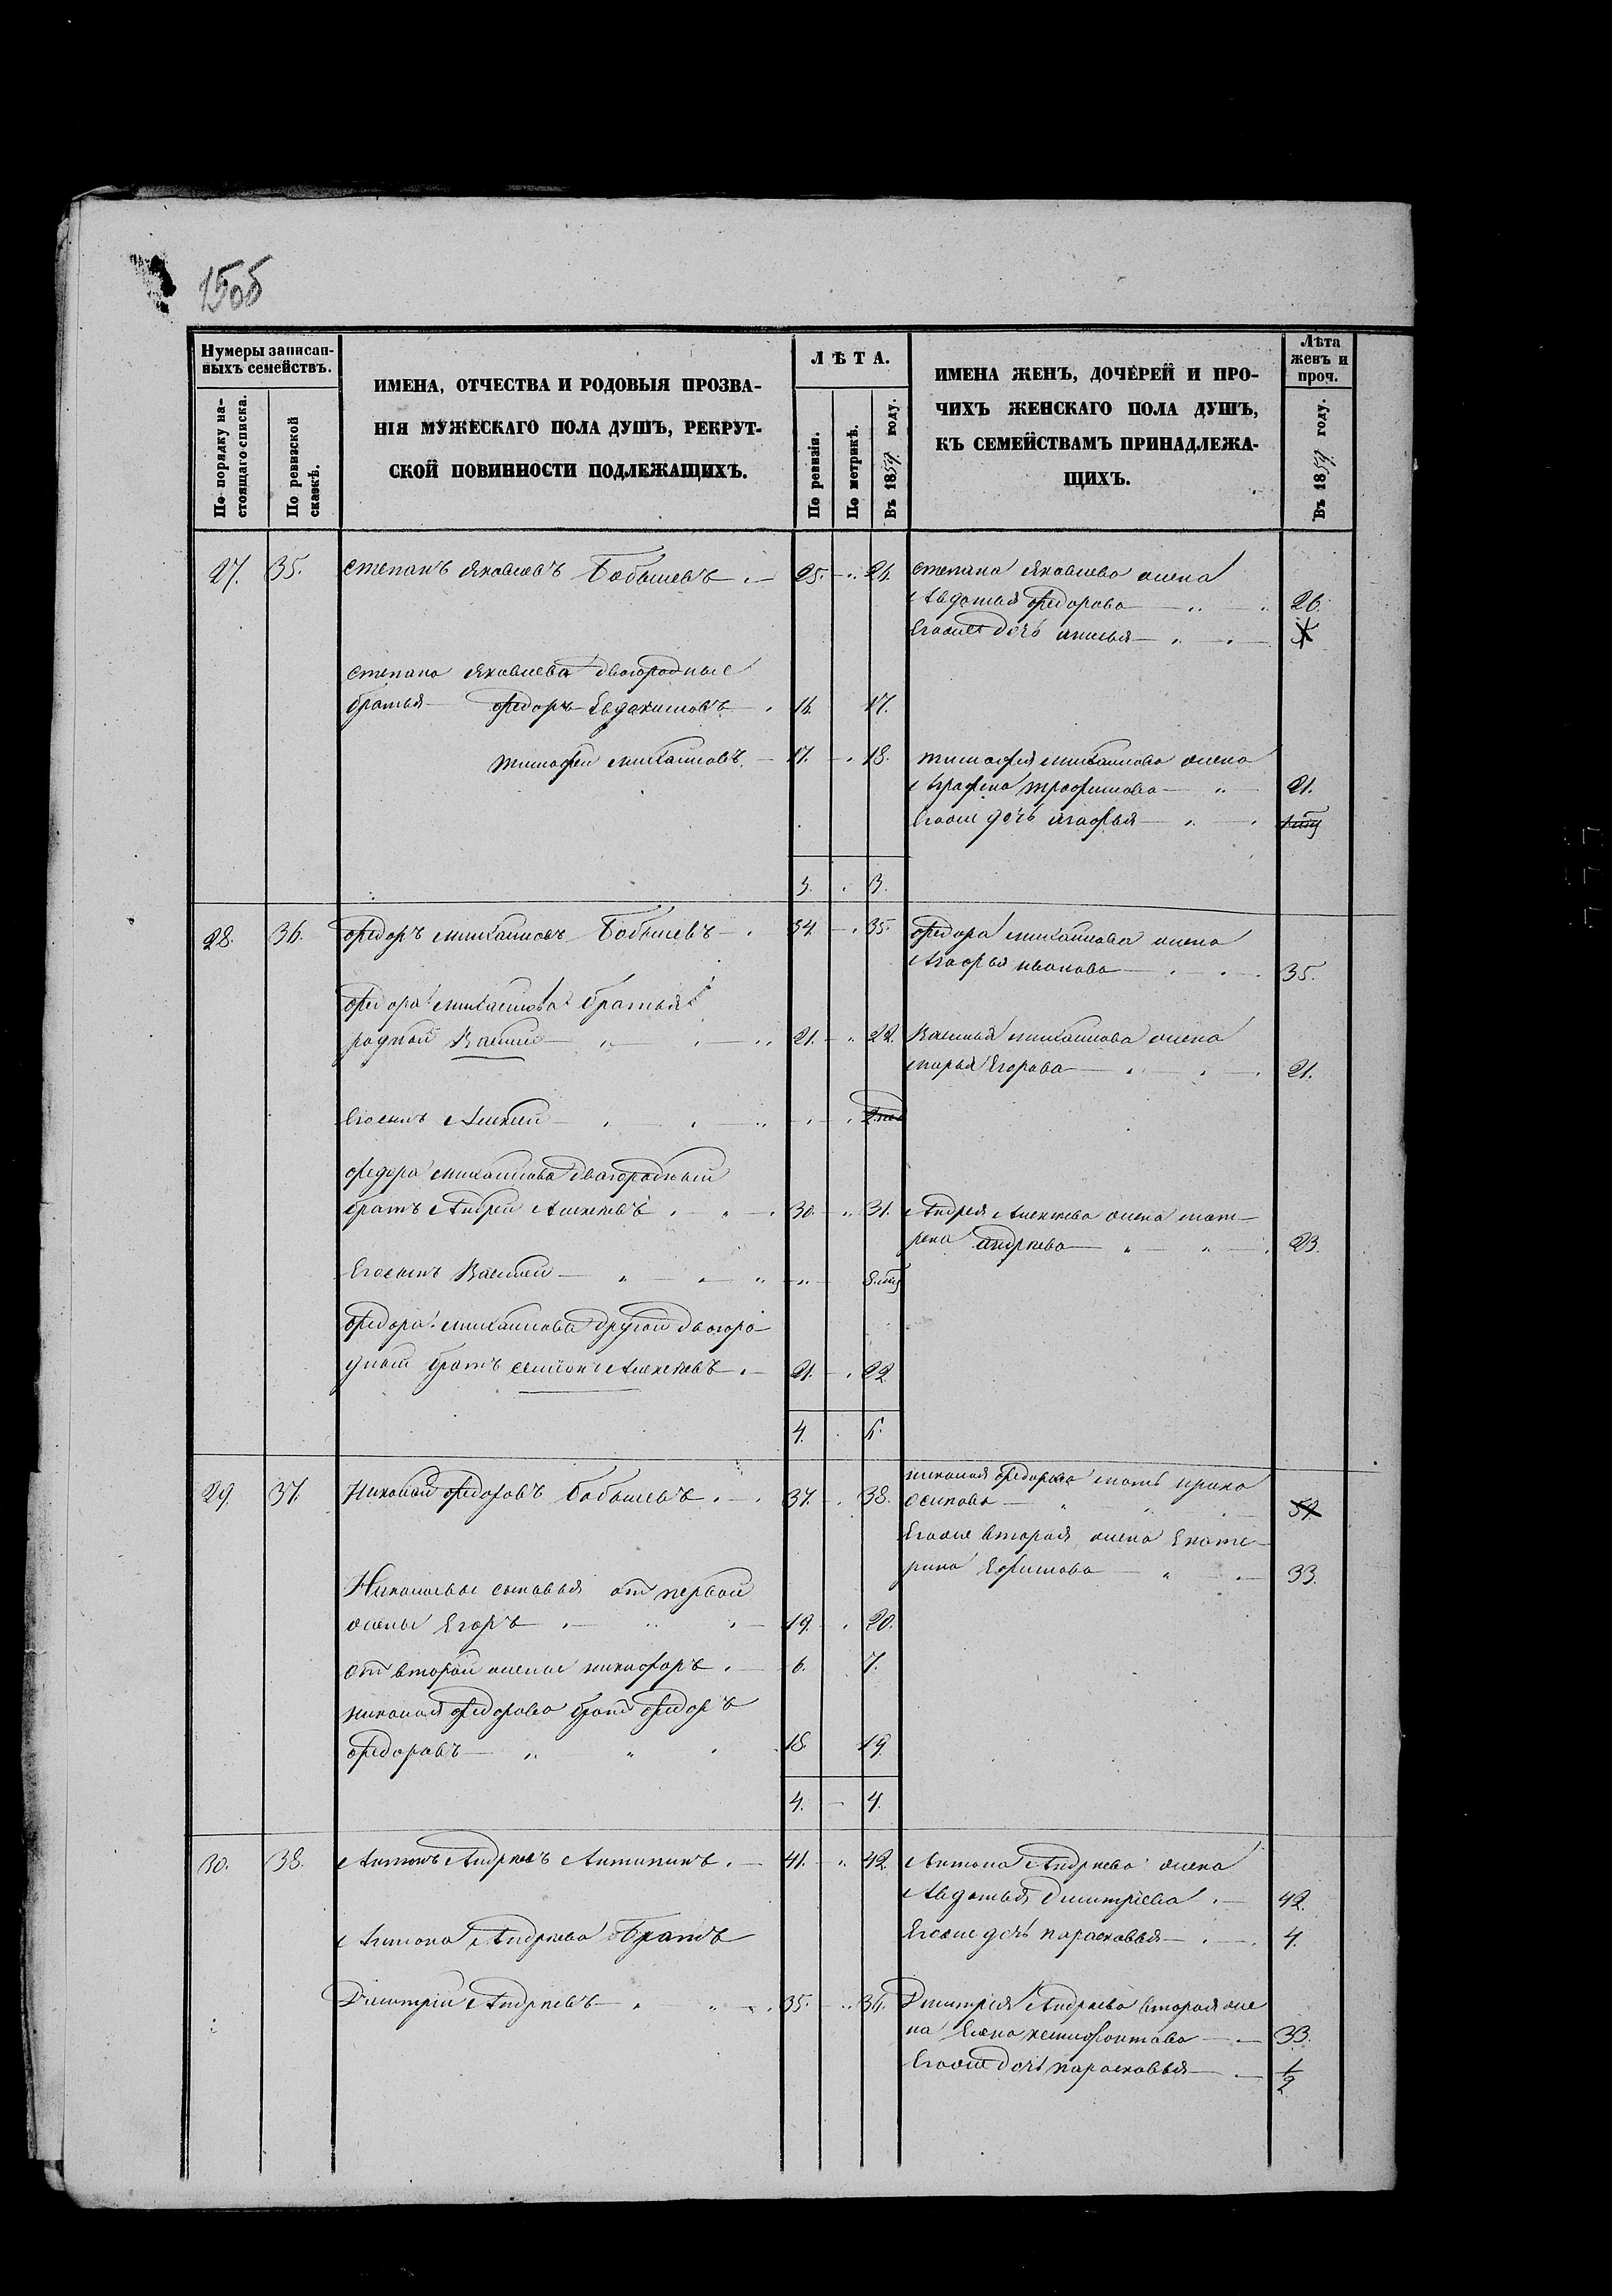 155
Нумеры записан-
ныхъ семействъ.
По порядку на-
стоящаго списка.
По ревизской
сказкѣ.
ИМЕНА, ОТЧЕСТВА И РОДОВЫЯ ПРОЗВА-
НІЯ МУЖЕСКАГО ПОЛА ДУШЪ, РЕКРУТ-
СКОЙ ПОВИННОСТИ ПОДЛЕЖАЩИХЪ.
ЛѢТА.
По ревизіи.
По метрикѣ.
Въ 1859. году.
ИМЕНА ЖЕНЪ, ДОЧЕРЕЙ И ПРО-
ЧИХЪ ЖЕНСКАГО ПОЛА ДУШЪ,
КЪ СЕМЕЙСТВАМЪ ПРИНАДЛЕЖА-
ЩИХЪ.
Лѣта
женъ и
проч.
Въ 1859. году.
27. 35. Степанъ Яковлевъ Бобышевъ 25. 26. Степана Яковлева жена
Авдотья Федорова 26.
Егоже дочь
Степана Яковлева двоюродные
братья Федоръ Евдокимовъ 16. 17.
Тимофей Михайловъ 17. 18. Тимофея Михайлова жена
Аграфена Трофимова 21.
Егоже дочь Агафья
3. 3.
28. 36. Федоръ Михайловъ Бобышевъ 34. 35. Федора Михайлова жена
Агафья Иванова 35.
Федора Михайлова братья
родной Василий 21. 22. Василья Михайлова жена
Марья Егорова 21.
Егосынъ Алексей
Федора Михайлова двоюродный
братъ Андрей Алексеевъ 30. 31. Андрея Алексеева жена Мат-
рена Андреева 23.
Егосынъ Василей
Федора Михайлова другой двоюро
дной братъ Семионъ Алексеевъ 21. 22
4. 5.
29. 37. Николай Федоровъ Бобышевъ 37. 38. Николая Федорова мать Ирина
Осипова 59.
Егоже вторая жена Екате-
рина Ефимова 33.
Николаевы сыновья от первой
жены Егоръ 19. 20.
От второй жены Никифоръ 6. 7.
Николая Федорова брат Федоръ
Федоровъ 18. 19.
4. 4.
30. 38. Антонъ Андреевъ Антипинъ 41. 42. Антона Андреева жена
Авдотья Дмитриева 42.
Антона Андреева братъ Егоже дочь Парасковья 4.
Дмитрий Андреевъ 35. 36. Дмитрия Андреева вторая же
на Елена Ксенофонтова 33.
Егоже дочь Парасковья 1/2